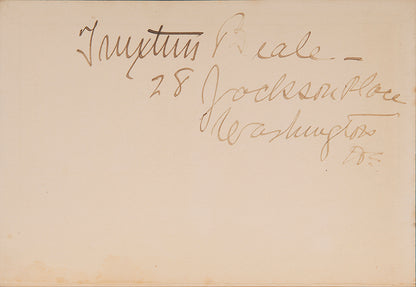 Truxtun Beale —
28 Jackson Place
Washington
D.C.